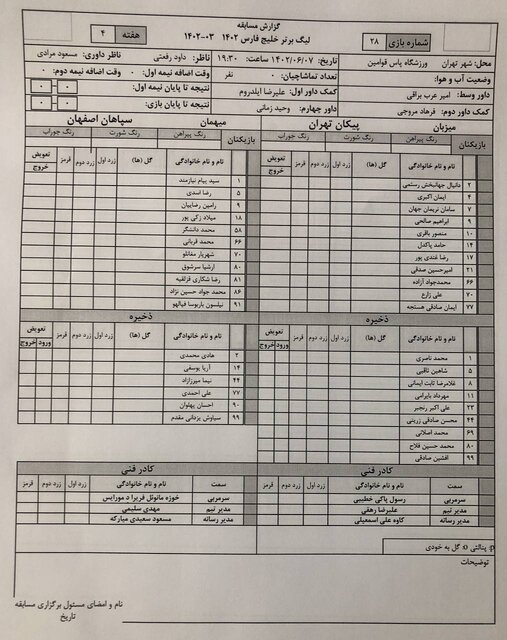 گزارش مسابقه
لیگ برتر خلیج فارس ۱۴۰۲ ۰۳-۱۴۰۲
شماره بازی ۲۸
هفته ۴
محل: شهر تهران ورزشگاه پاس قوامین
تاریخ: ۱۴۰۲/۰۶/۰۷ ساعت: ۱۹:۳۰
ناظر: داود رفعتی
ناظر داوری: مسعود مرادی
وضعیت آب و هوا:
تعداد تماشاچیان: نفر
وقت اضافه نیمه اول: ۰
وقت اضافه نیمه دوم: ۰
داور وسط: امیر عرب براقی
کمک داور اول: علیرضا ایلدروم
نتیجه تا پایان نیمه اول: ۰ - ۰
کمک داور دوم: فرهاد مروجی
داور چهارم: وحید زمانی
نتیجه تا پایان بازی: ۰ - ۰
میزبان پیکان تهران
میهمان سپاهان اصفهان
بازیکنان رنگ پیراهن رنگ شورت رنگ جوراب
بازیکنان رنگ پیراهن رنگ شورت رنگ جوراب
نام و نام خانوادگی گل (ها) زرد اول زرد دوم قرمز تعویض خروج
۲ دانیال جهانبخش رستمی
۴ ایمان اکبری
۷ سامان نریمان جهان
۹ ابراهیم صالحی
۱۰ منصور باقری
۱۴ حامد پاکدل
۱۷ رضا غندی پور
۲۱ امیرحسین صدقی
۶۶ محمدجواد آزاده
۷۰ علی زارع
۷۷ ایمان صادقی هسنجه
نام و نام خانوادگی گل (ها) زرد اول زرد دوم قرمز تعویض خروج
۱ سید پیام نیازمند
۵ رضا اسدی
۹ رامین رضاییان
۱۸ میلاد زکی پور
۵۸ محمد دانشگر
۶۶ محمد قربانی
۷۰ شهریار مغانلو
۸۰ ارشیا سرشوق
۸۱ رضا شکاری قزلقیه
۸۶ محمد جواد حسین نژاد
۹۱ نیلسون باربوسا فیالهو
ذخیره
نام و نام خانوادگی گل (ها) زرد اول زرد دوم قرمز تعویض ورود خروج
۱ محمد ناصری
۵ شاهین ثاقبی
۸ غلامرضا ثابت ایمانی
۱۱ مهرداد بایرامی
۲۳ علی اکبر رنجبر
۴۴ محسن صادقی زرینی
۶۹ محمد اصلانی
۸۰ محمد حسین فلاح
۹۹ افشین صادقی
ذخیره
نام و نام خانوادگی گل (ها) زرد اول زرد دوم قرمز تعویض ورود خروج
۲ هادی محمدی
۱۴ آریا یوسفی
۴۴ نیما میرزازاد
۷۷ علی احمدی
۹۰ احسان پهلوان
۹۹ سیاوش یزدانی مقدم
کادر فنی
سمت نام و نام خانوادگی زرد اول زرد دوم قرمز
سرمربی رسول پاکی خطیبی
مدیر تیم علیرضا رهقی
مدیر رسانه کاوه علی اسمعیلی
کادر فنی
سمت نام و نام خانوادگی زرد اول زرد دوم قرمز
سرمربی خوزه مانوئل فریرا د مورایس
مدیر تیم مهدی سلیمی
مدیر رسانه مسعود سعیدی مبارکه
p: پنالتی o: گل به خودی
توضیحات
نام و امضای مسئول برگزاری مسابقه
تاریخ